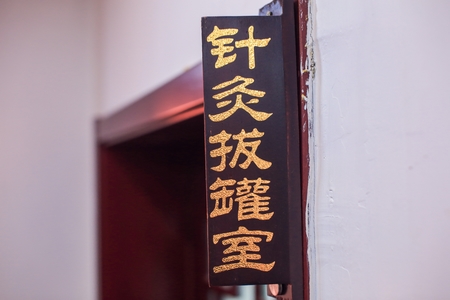 针灸拔罐室